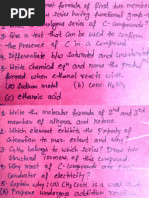 formula of first two members
series having functional group
homologous series of C-compounds?
3. Give a test that can be used to confirm
the presence of C in a compound.
4. Differentiate b/w saturated and unsaturated
5. Write chemical eqⁿ and name the product
formed when ethanol reacts with
(a) Sodium metal (b) Conc. H₂SO₄
(c) ethanoic acid
1. Write the molecular formula of 2nd and 3rd
member of alkynes and ketone.
2. Which element exhibits the property of
catenation to max. extent and why?
3. belongs to which series? Draw two
structural isomers of this compound.
4. Why most of C-compounds are poor
conductor of electricity?
5. Explain why: (a) CH₃COOH is a weak acid.
(b) Propene undergoes addition